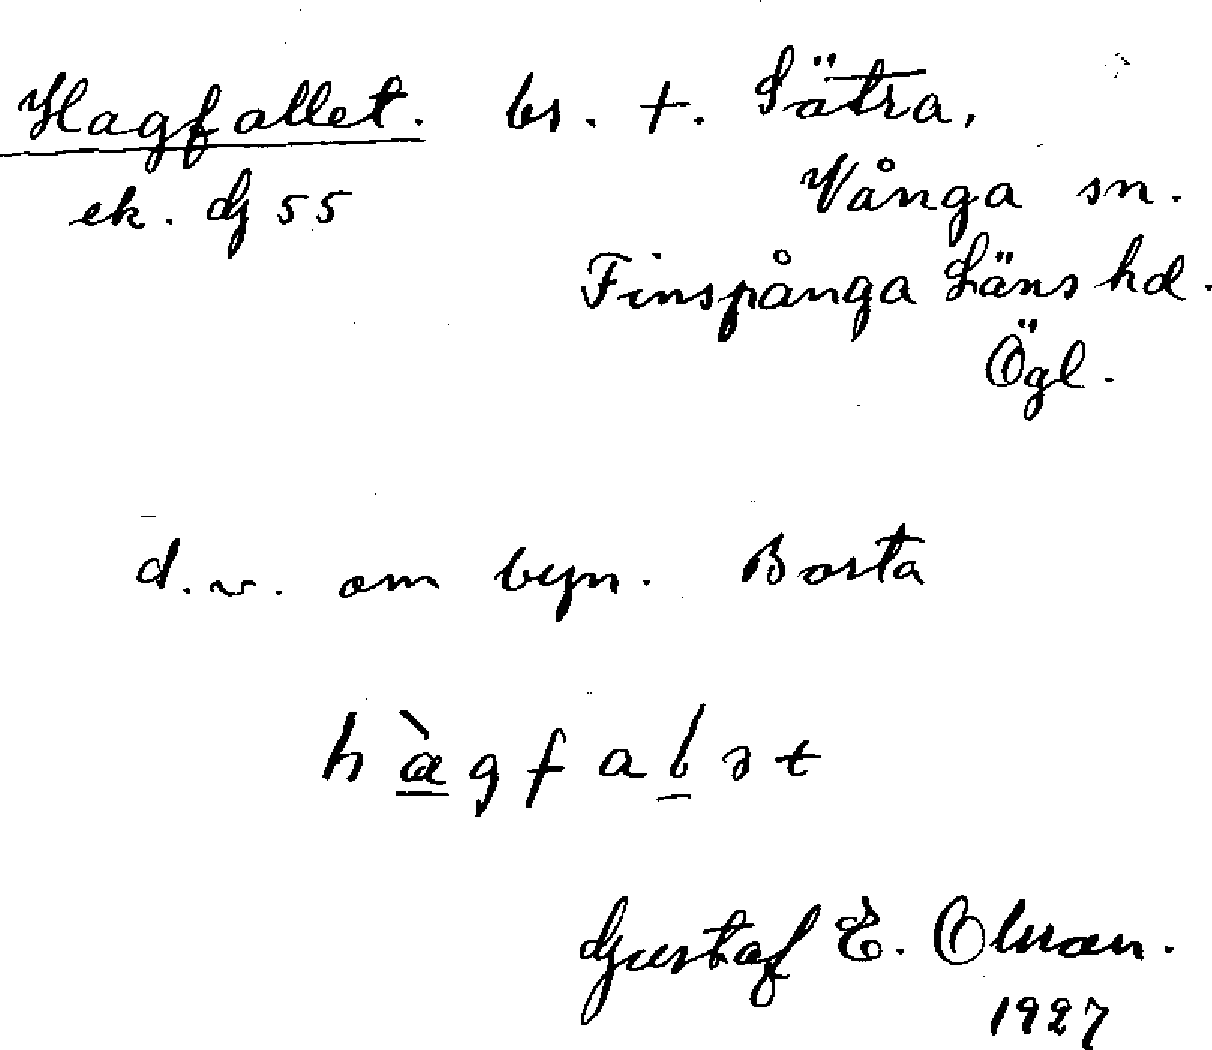 Hagfallet. bs. t. Sätra,
ek. dj 55 Vånga sn.
Finspånga Läns hd.
Ögl.
d.v. om byn. Borta
hàgfalət
Gustaf E. Olsson.
1927